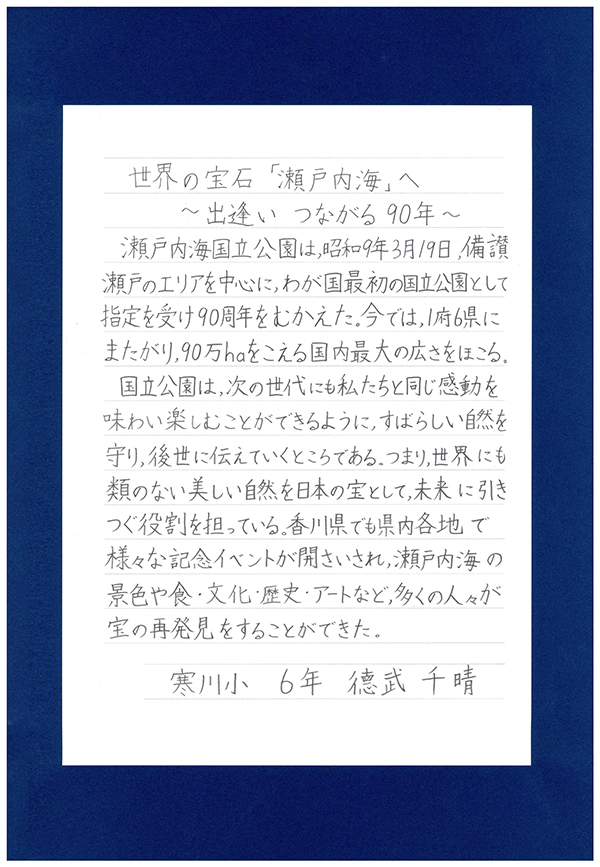 世界の宝石「瀬戸内海」へ
～出逢い つながる 90年～
瀬戸内海国立公園は,昭和9年3月19日,備讃
瀬戸のエリアを中心に,わが国最初の国立公園として
指定を受け90周年をむかえた。今では,1府6県に
またがり,90万haをこえる国内最大の広さをほこる。
国立公園は,次の世代にも私たちと同じ感動を
味わい楽しむことができるように,すばらしい自然を
守り,後世に伝えていくところである。つまり,世界にも
類のない美しい自然を日本の宝として,未来に引き
つぐ役割を担っている。香川県でも県内各地で
様々な記念イベントが開さいされ,瀬戸内海の
景色や食・文化・歴史・アートなど,多くの人々が
宝の再発見をすることができた。
寒川小 6年 德武 千晴